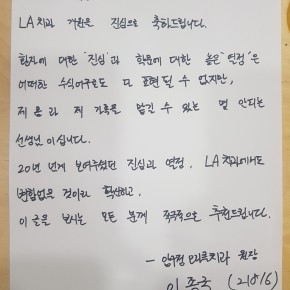 LA치과 개원을 진심으로 축하드립니다.
환자에 대한 '진심'과 학문에 대한 높은 '열정'은
어떠한 수식어구로도 다 표현될 수 없지만,
제 몸과 제 가족을 맡길 수 있는 몇 안되는
선생님이십니다.
20여 년간 보여주셨던 진심과 열정, LA치과에서도
변함없을 것이라 확신하고,
이 글을 보시는 모든 분께 적극적으로 추천드립니다.
치과 원장
이종국